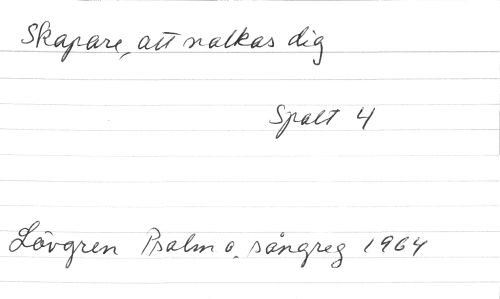 Skapare, att nalkas dig
Spalt 4
Lövgren Psalm o. sångreg 1964